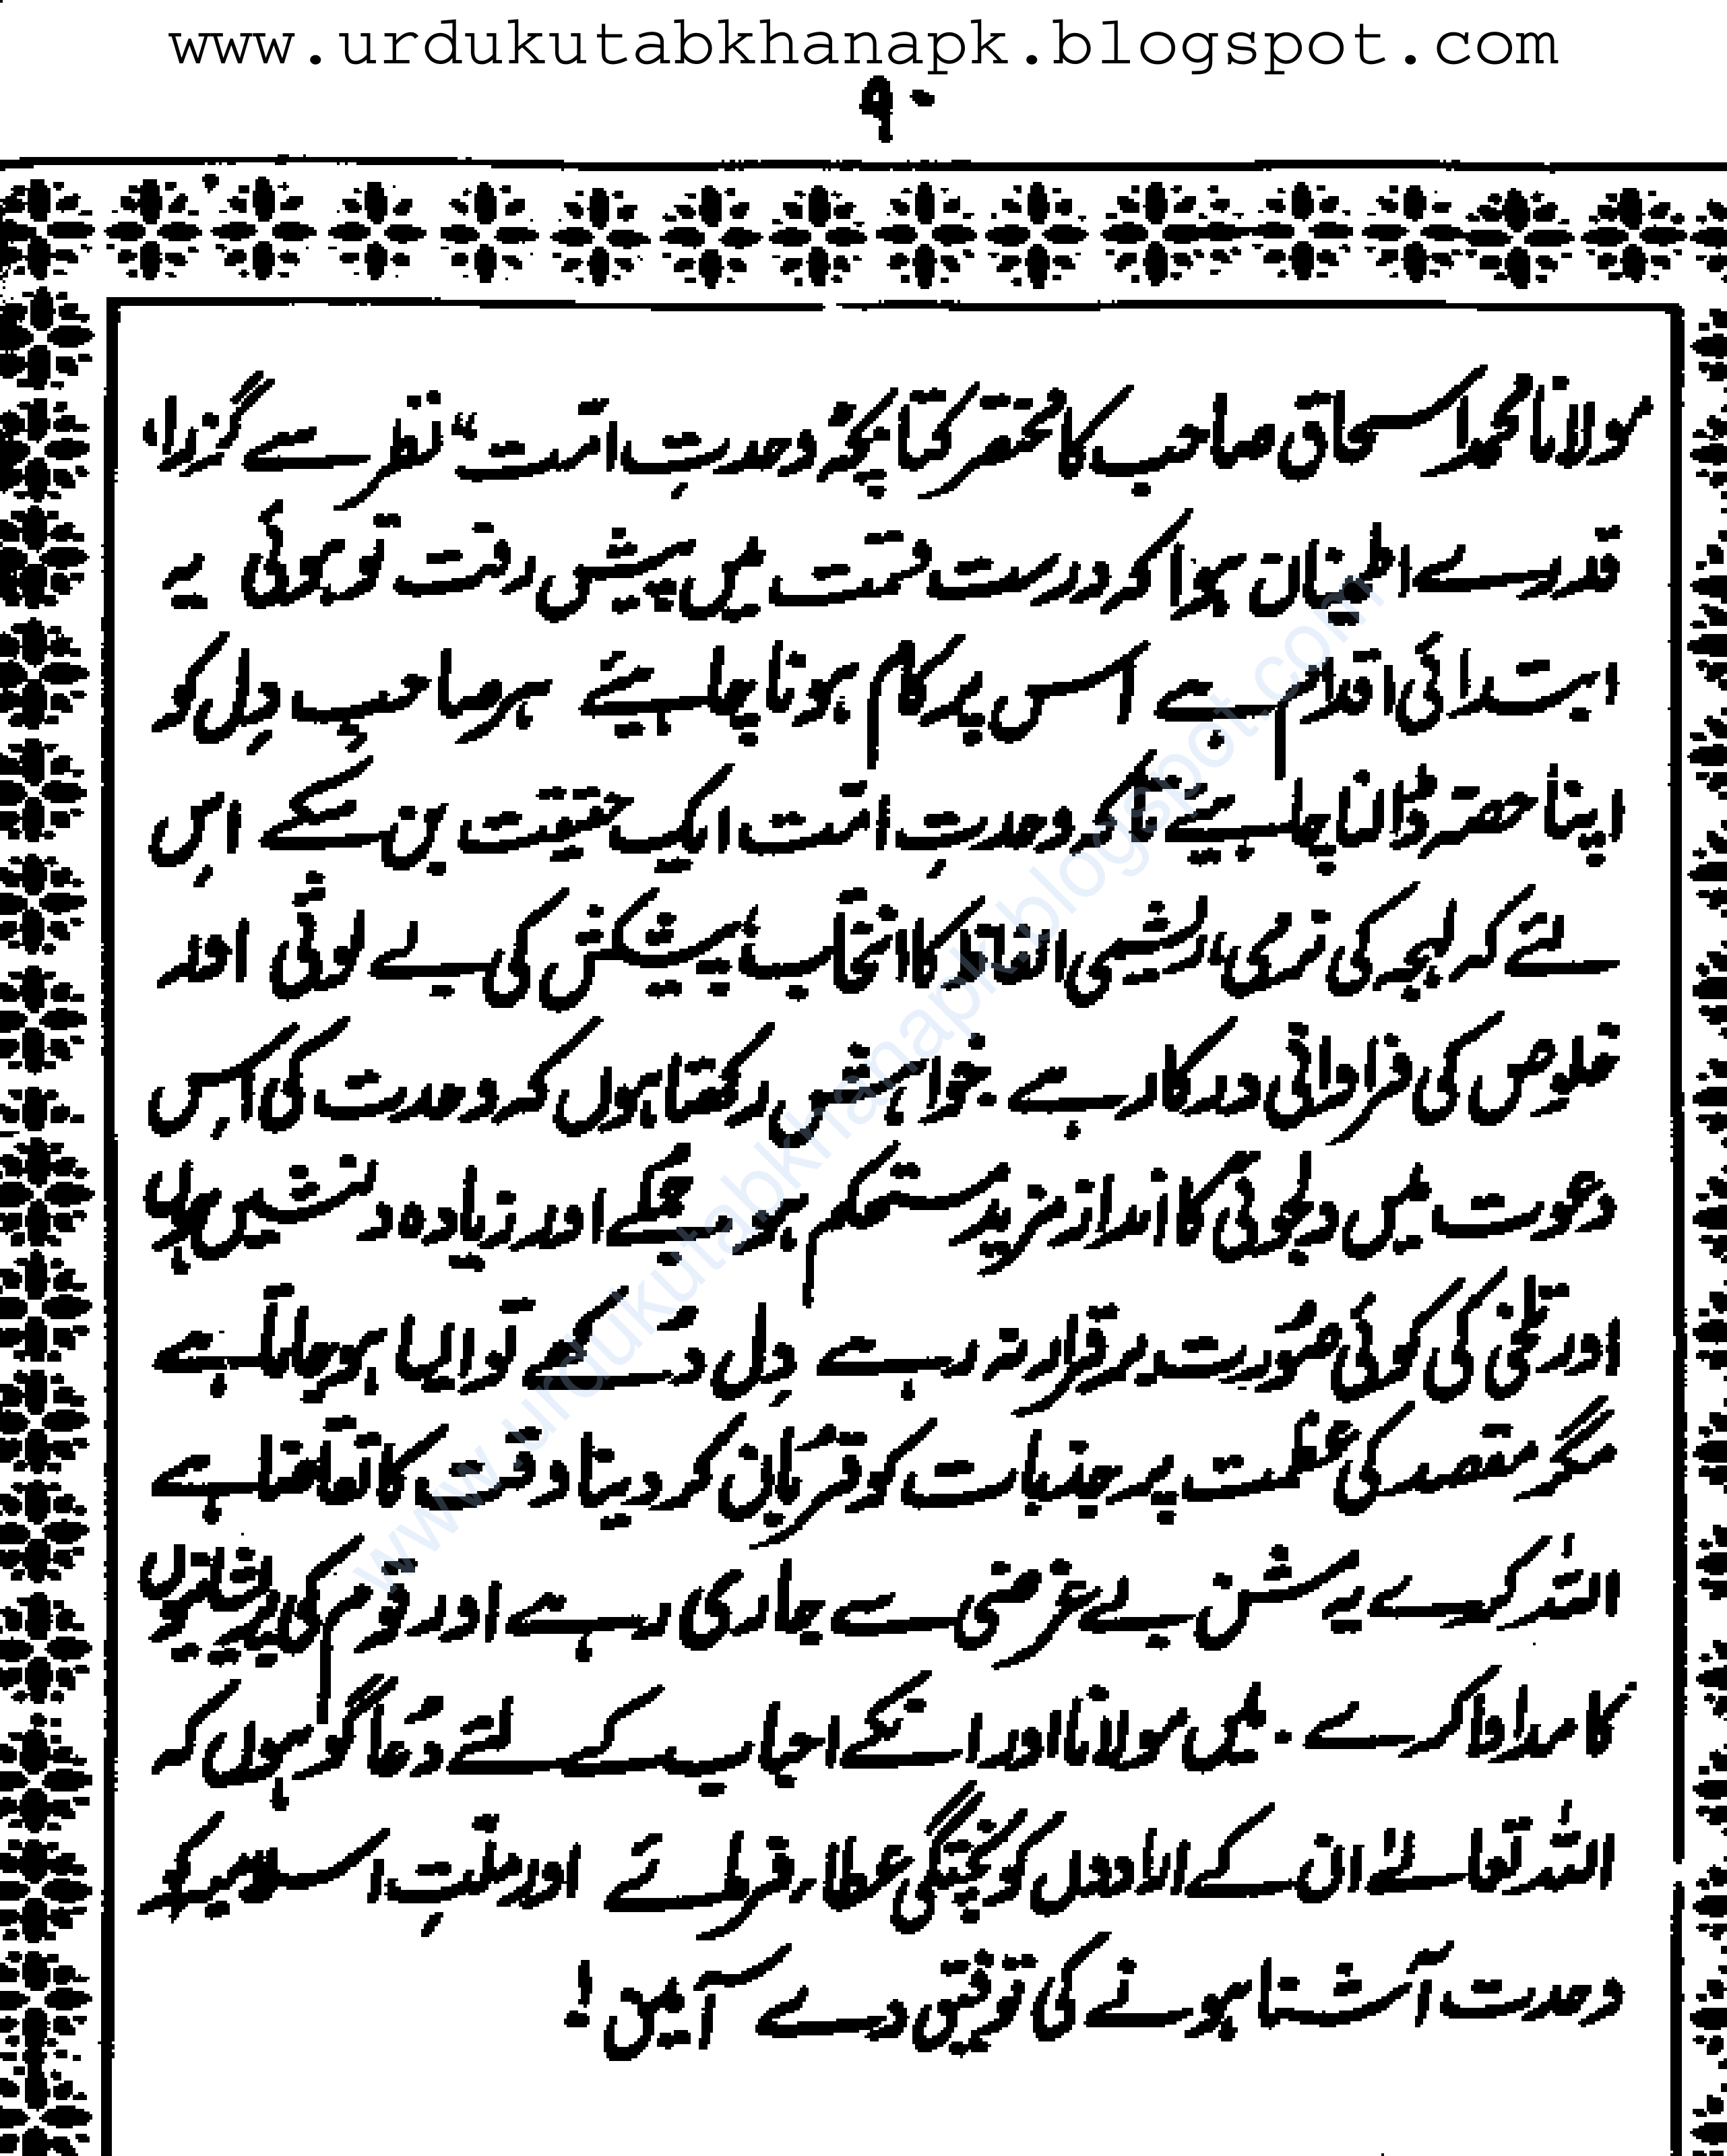 www.urdukutabkhanapk.blogspot.com
۹۰
مولانا محمد اسحاق صاحب کا مختصر کتابچہ وحدتِ امت“ نظر سے گزرا،
قدرے اطمینان ہوا کہ درست قسمت میں پیش رفت تو ہوئی یہ
ابتدائی اقدام ہے اس پر کام ہونا چاہیئے ہر صاحبِ دِل کو
اپنا حصہ ڈالنا چاہیئے تاکہ وحدتِ امّت ایک حقیقت بن سکے اِس
لئے کہ لہجہ کی نرمی، ریشمی الفاظ کا انتخاب، پیشکش کی بے لوثی اور
خلوص کی فراوانی درکار ہے۔ خواہش رکھتا ہوں کہ وحدت کی اِس
دعوت میں دلجوئی کا انداز مزید مستحکم ہو جملے اور زیادہ دلنشیں ہوں
اور تلخی کی کوئی صُورت برقرار نہ رہے دِل دُکھے تو ایسا ہو جاتا ہے
مگر مقصد کی عظمت پر جذبات کو قُربان کر دینا وقت کا تقاضا ہے
اللہ کرے یہ مشن بے غرضی سے جاری رہے اور قوم کی پریشانیوں
کا مداوا کرے۔ میں مولانا اور انکے احباب کے لئے دُعا گو ہوں کہ
اللہ تعالےٰ ان کے ارادوں کو پختگی عطاء فرمائے اور ملّتِ اسلامیہ کو
وحدت آشنا ہونے کی توفیق دے آمین!
www.urdukutabkhanapk.blogspot.com